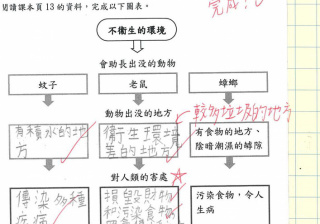 閱讀課本頁13的資料，完成以下圖表。
完成：
不衞生的環境
會助長出沒的動物
蚊子
老鼠
蟑螂
動物出沒的地方
較多垃圾的地方
有積水的地
方
衞生環境
差的地方
有食物的地方、
陰暗潮濕的罅隙
對人類的害處
傳染多種
疾病
損毀財物
和污染食物
污染食物，令人
生病